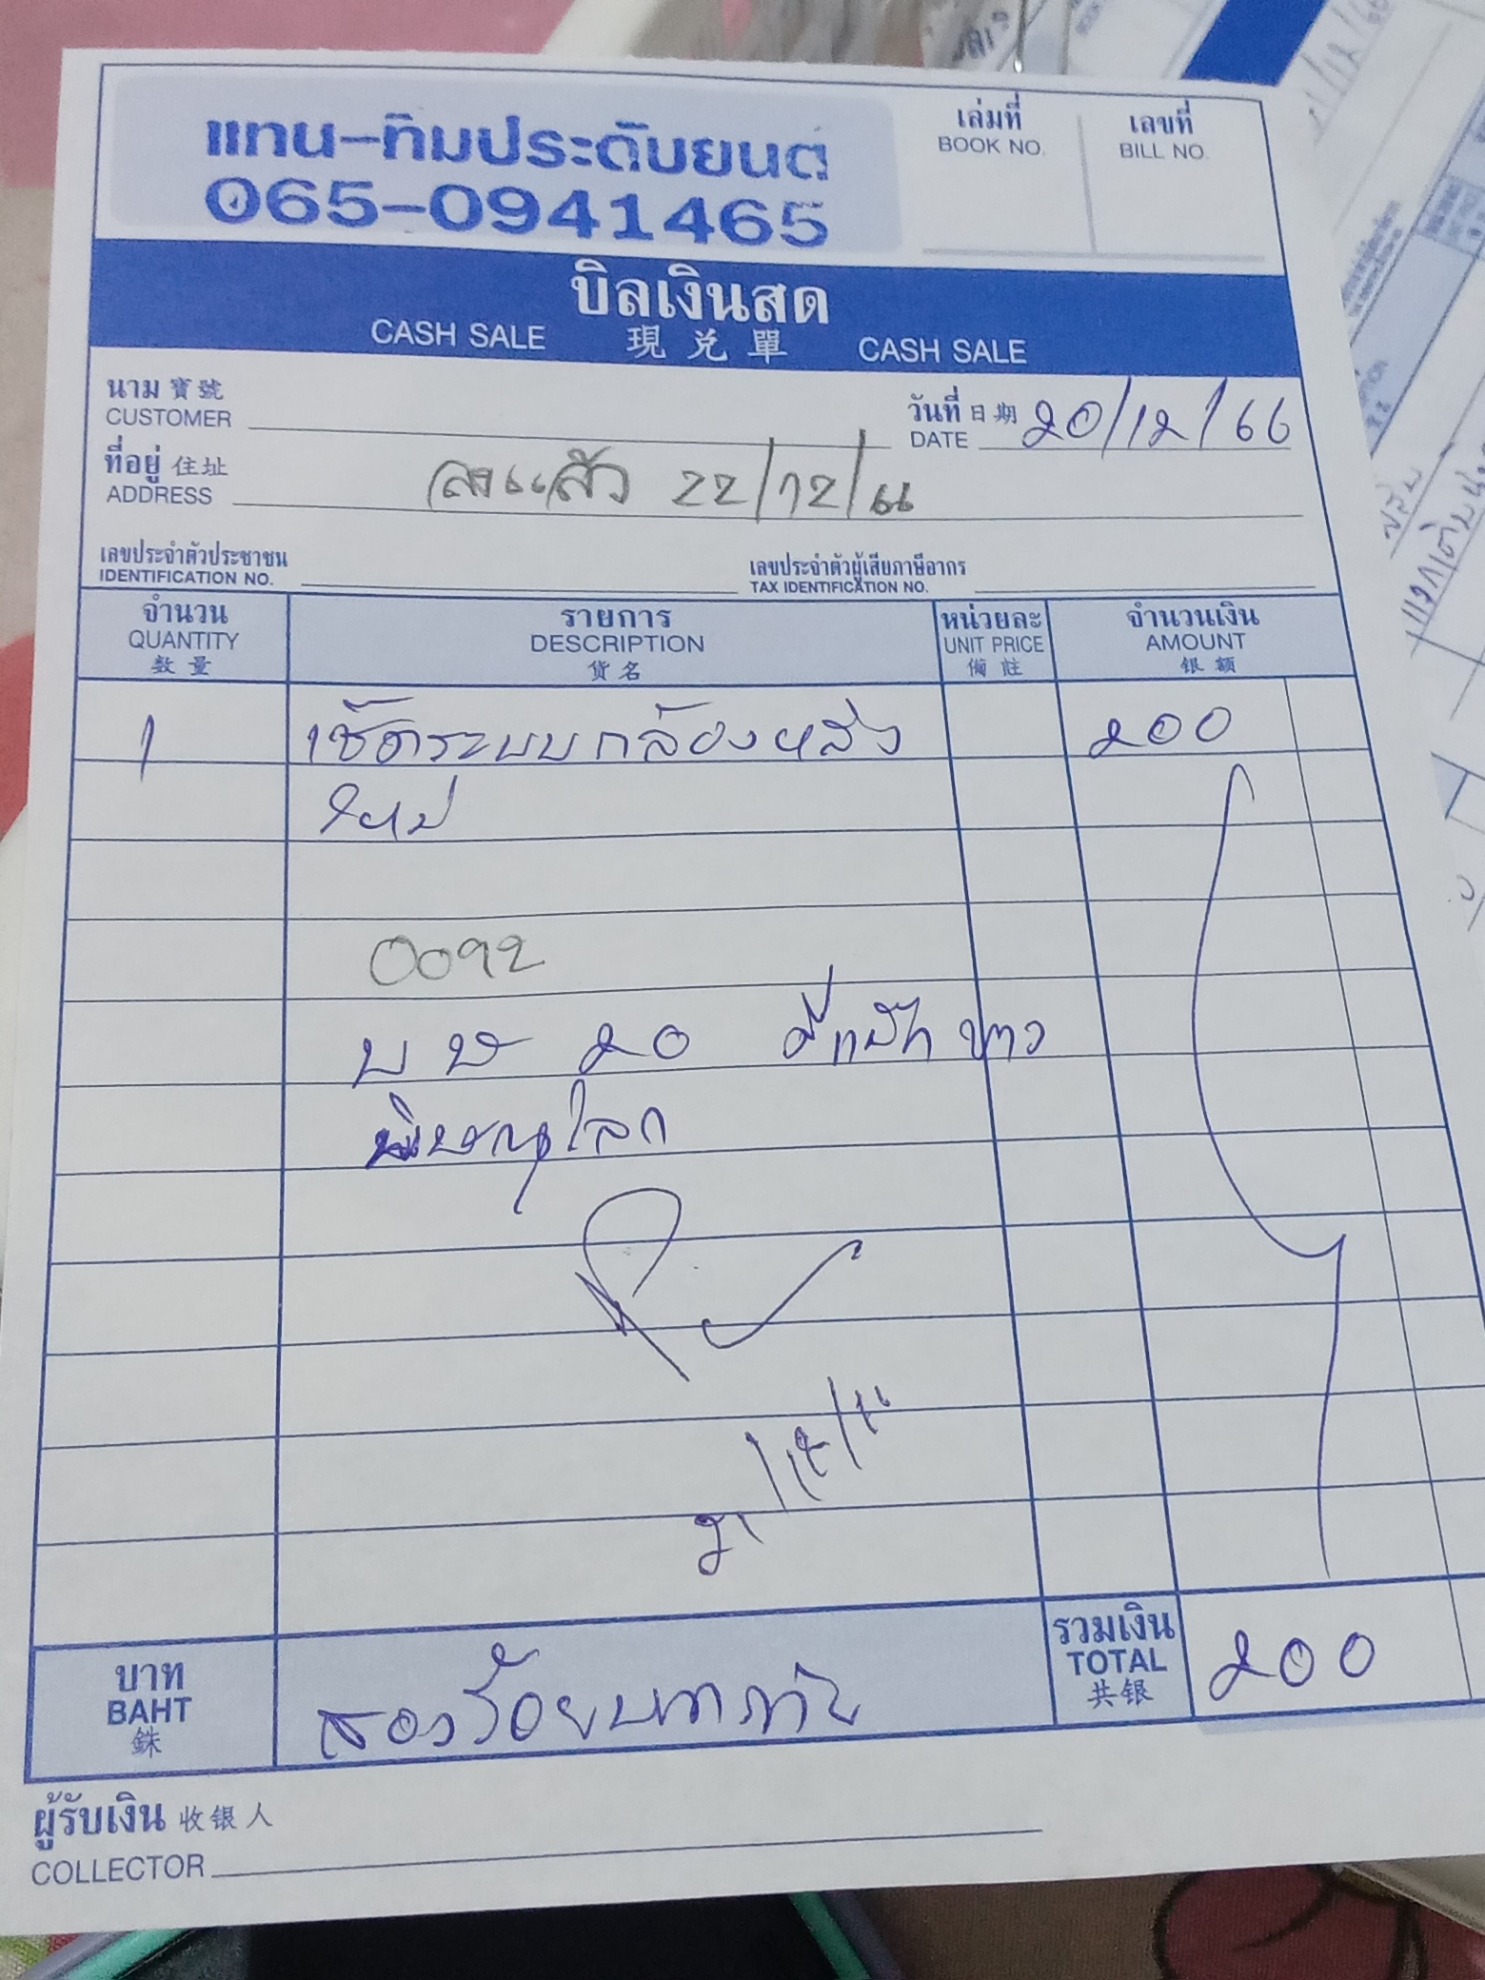 แทน-ทิมประดับยนต์
065-0941465
เล่มที่
BOOK NO.
เลขที่
BILL NO.
บิลเงินสด
CASH SALE 現兌單 CASH SALE
นาม 寶號
CUSTOMER
วันที่ 日期
DATE 20/12/66
ที่อยู่ 住址
ADDRESS ลงแล้ว 22/12/66
เลขประจำตัวประชาชน
IDENTIFICATION NO.
เลขประจำตัวผู้เสียภาษีอากร
TAX IDENTIFICATION NO.
จำนวน รายการ หน่วยละ จำนวนเงิน
QUANTITY DESCRIPTION UNIT PRICE AMOUNT
数量 货名 備註 银额
1 เช็ตระบบกล้องหลัง 200
ใหม่
0092
บษ 20 ดีแม็ก ขาว
พิษณุโลก
บาท
BAHT
銖
สองร้อยบาทถ้วน
รวมเงิน
TOTAL
共银
200
ผู้รับเงิน 收银人
COLLECTOR